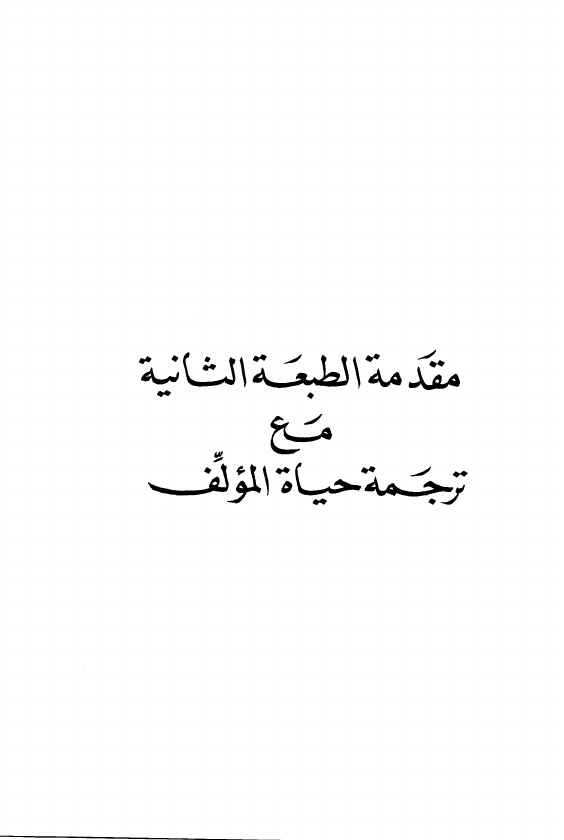 مقدَمة الطبعَة الثانية
مَع
ترجَمة حياة المؤلِّف